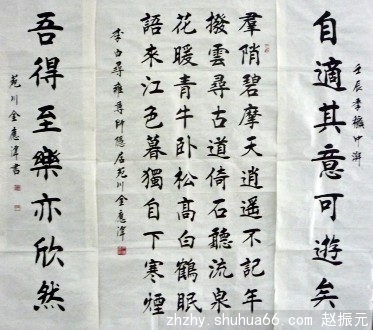 壬辰中澣
自適其意可遊矣
羣陗碧摩天逍遥不記年
撥雲尋古道倚石聽流泉
花暖青牛卧松高白鶴眠
語來江色暮獨自下寒煙
李白尋雍尊師隱居苑川金
吾得至樂亦欣然
苑川金書
zhzhy.shuhua66.com 赵振元